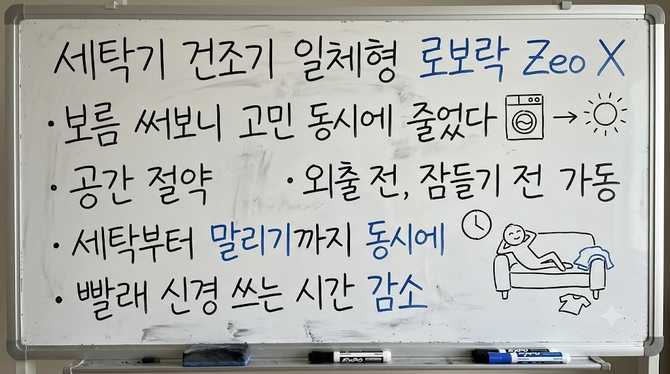 세탁기 건조기 일체형 로보락 Zeo X
• 보름 써보니 고민 동시에 줄었다
• 공간 절약 • 외출 전, 잠들기 전 가동
• 세탁부터 말리기까지 동시에
• 빨래 신경 쓰는 시간 감소
EXPO
EXPO